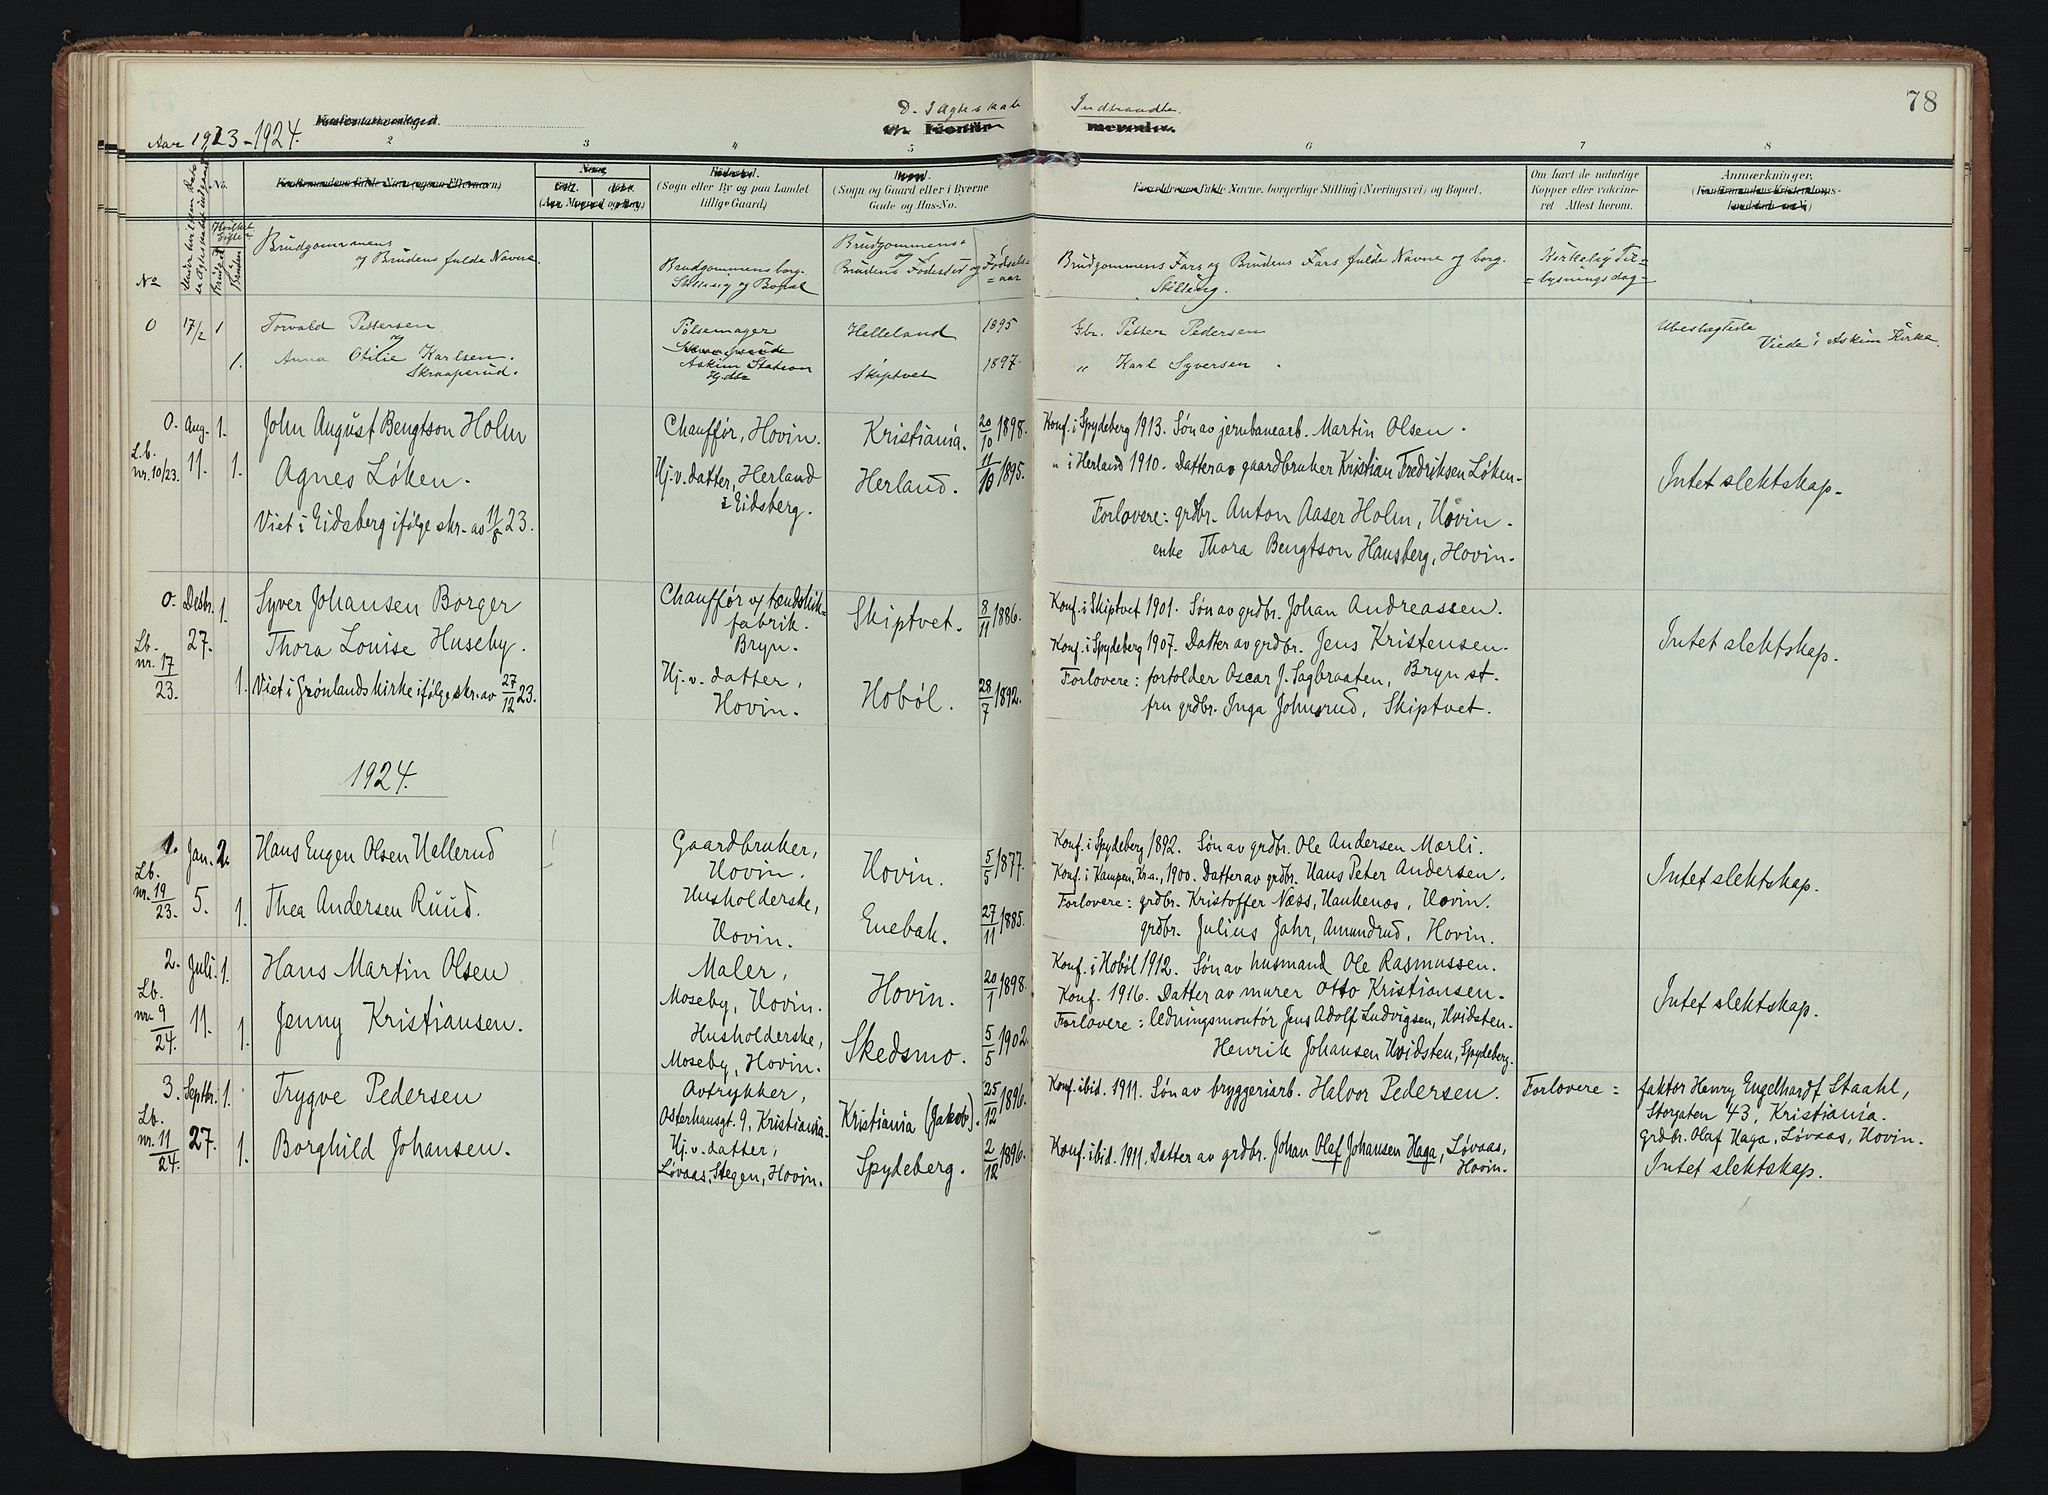 Aar 1923-1924.
D. I Ægteskab
Indtraadte.
78
2 3 4 5 6 7 8
No.
(Sogn eller By og paa Landet tillige Gaard)
(Sogn og Gaard eller i Byerne Gade og Hus-No.
fulde Navne, borgerlige Stilling (Næringsvei) og Bopæl.
Om havt de naturlige Kopper eller vakcineret. Attest herom.
Anmærkninger.
No
Brudgommens og Brudens fulde Navne.
Brudgommens borg. Stilling og Bopæl
Brudgommens og Brudens Fødested og Fødselsaar
Brudgommens Fars og Brudens Fars fulde Navne og borg. Stilling.
Kirkelig Tillysningsdag
0 17/2 1 Torvald Pettersen Pølsemager Helleland 1895 Gbr. Petter Pedersen Ubeslægtede
og Viede i Askim Kirke.
1. Anna Otilie Karlsen. Askim Station Skiptvet 1897. " Karl Syversen
Skraaperud.
0. Aug. 1. John August Bengtson Holm Chauffør, Hovin. Kristiania. 20/10 1898. Konf. i Spydeberg 1913. Søn av jernbanearb. Martin Olsen.
Lb. nr. 10/23. 11. 1. Agnes Løken. Hj. v. datter, Herland i Eidsberg. Herland. 11/10 1895. " i Herland 1910. Datter av gaardbruker Kristian Fredriksen Løken. Intet slektskap.
Viet i Eidsberg ifølge skr. av 11/8 23. Forlovere: grdbr. Anton Aaser Holm, Hovin.
enke Thora Bengtson Hansberg, Hovin.
0. Desbr. 1. Syver Johansen Borger Chauffør v/ tændstikfabrik. Bryn. Skiptvet. 8/11 1886. Konf. i Skiptvet 1901. Søn av grdbr. Johan Andreassen.
Lb. nr. 17/23. 27. Thora Louise Huseby. Konf. i Spydeberg 1907. Datter av grdbr. Jens Kristensen. Intet slektskap.
1. Viet i Grønlands kirke ifølge skr. av 27/12 23. Hj. v. datter, Hovin. Hobøl. 28/7 1892. Forlovere: fortolder Oscar J. Sagbraaten, Bryn st.
fru grdbr. Inga Johnsrud, Skiptvet.
1924.
1. Jan. 2. Hans Eugen Olsen Hellerud Gaardbruker, Hovin. Hovin. 5/5 1877. Konf. i Spydeberg 1892. Søn av grdbr. Ole Andersen Mærli.
Lb. nr. 19/23. 5. 1. Thea Andersen Ruud. Husholderske, Hovin. Enebak. 27/11 1885. Konf. i Kampen, Kr.a., 1900. Datter av grdbr. Hans Peter Andersen. Intet slektskap.
Forlovere: grdbr. Kristoffer Næss, Haukenæs, Hovin.
grdbr. Julius Jahr, Amundrud, Hovin.
2. Juli. 1. Hans Martin Olsen Maler, Moseby, Hovin. Hovin. 20/1 1898. Konf. i Hobøl 1912. Søn av husmand Ole Rasmussen.
Lb. nr. 9/24. 11. 1. Jenny Kristiansen. Husholderske, Moseby, Hovin. Skedsmo. 5/5 1902. Konf. 1916. Datter av murer Otto Kristiansen. Intet slektskap.
Forlovere: ledningsmontør Jens Adolf Ludvigsen, Hvidsten.
Henrik Johansen Hvidsten, Spydeberg.
3. Septbr. 1. Trygve Pedersen Avtrykker, Osterhausgt. 9, Kristiania. Kristiania (Jakob). 25/12 1896. Konf. ibid. 1911. Søn av bryggeriarb. Halvor Pedersen. Forlovere: faktor Henry Engelhardt Staahl,
Storgaten 43, Kristiania.
grdbr. Olaf Haga, Løvaas, Hovin.
Lb. nr. 11/24. 27. 1. Borghild Johansen. Hj. v. datter, Løvaas, Stegen, Hovin. Spydeberg. 2/12 1896. Konf. ibid. 1911. Datter av grdbr. Johan Olaf Johansen Haga, Løvaas, Hovin. Intet slektskap.